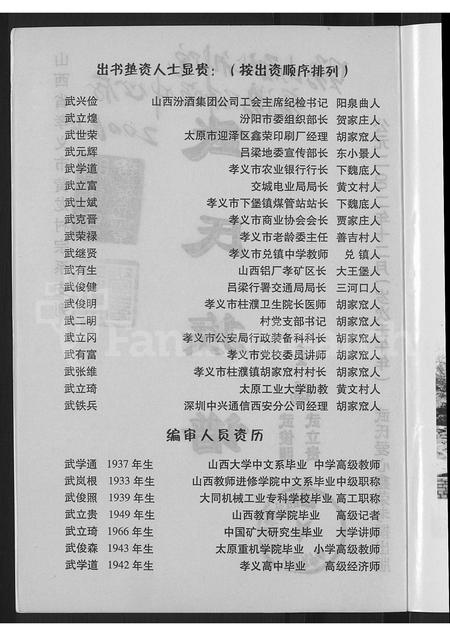 出书垫资人士显贵：（按出资顺序排列）
武兴俭 山西汾酒集团公司工会主席纪检书记 阳泉曲人
武立煌 汾阳市委组织部长 贺家庄人
武世荣 太原市迎泽区鑫荣印刷厂经理 胡家窊人
武元辉 吕梁地委宣传部长 东小景人
武学道 孝义市农业银行行长 下魏底人
武立富 交城电业局局长 黄文村人
武士斌 孝义市下堡镇煤管站站长 下魏底人
武克晋 孝义市商业协会会长 贾家庄人
武荣禄 孝义市老龄委主任 善吉村人
武继贤 孝义市兑镇中学教师 兑镇人
武有生 山西铝厂孝矿区长 大王堡人
武俊健 吕梁行署交通局局长 三河口人
武俊明 孝义市柱濮卫生院长医师 胡家窊人
武二明 村党支部书记 胡家窊人
武立冈 孝义市公安局行政装备科科长 胡家窊人
武有富 孝义市党校委员讲师 胡家窊人
武张维 孝义市柱濮镇胡家窊村村长 胡家窊人
武立琦 太原工业大学助教 黄文村人
武铁兵 深圳中兴通信西安分公司经理 胡家窊人
编审人员资历
武学通 1937 年生 山西大学中文系毕业 中学高级教师
武岚根 1933 年生 山西教师进修学院中文系毕业中级职称
武俊照 1939 年生 大同机械工业专科学校毕业 高工职称
武立贵 1949 年生 山西教育学院毕业 高级记者
武立琦 1966 年生 中国矿大研究生毕业 大学讲师
武俊森 1943 年生 太原重机学院毕业 小学高级教师
武学道 1942 年生 孝义高中毕业 高级经济师